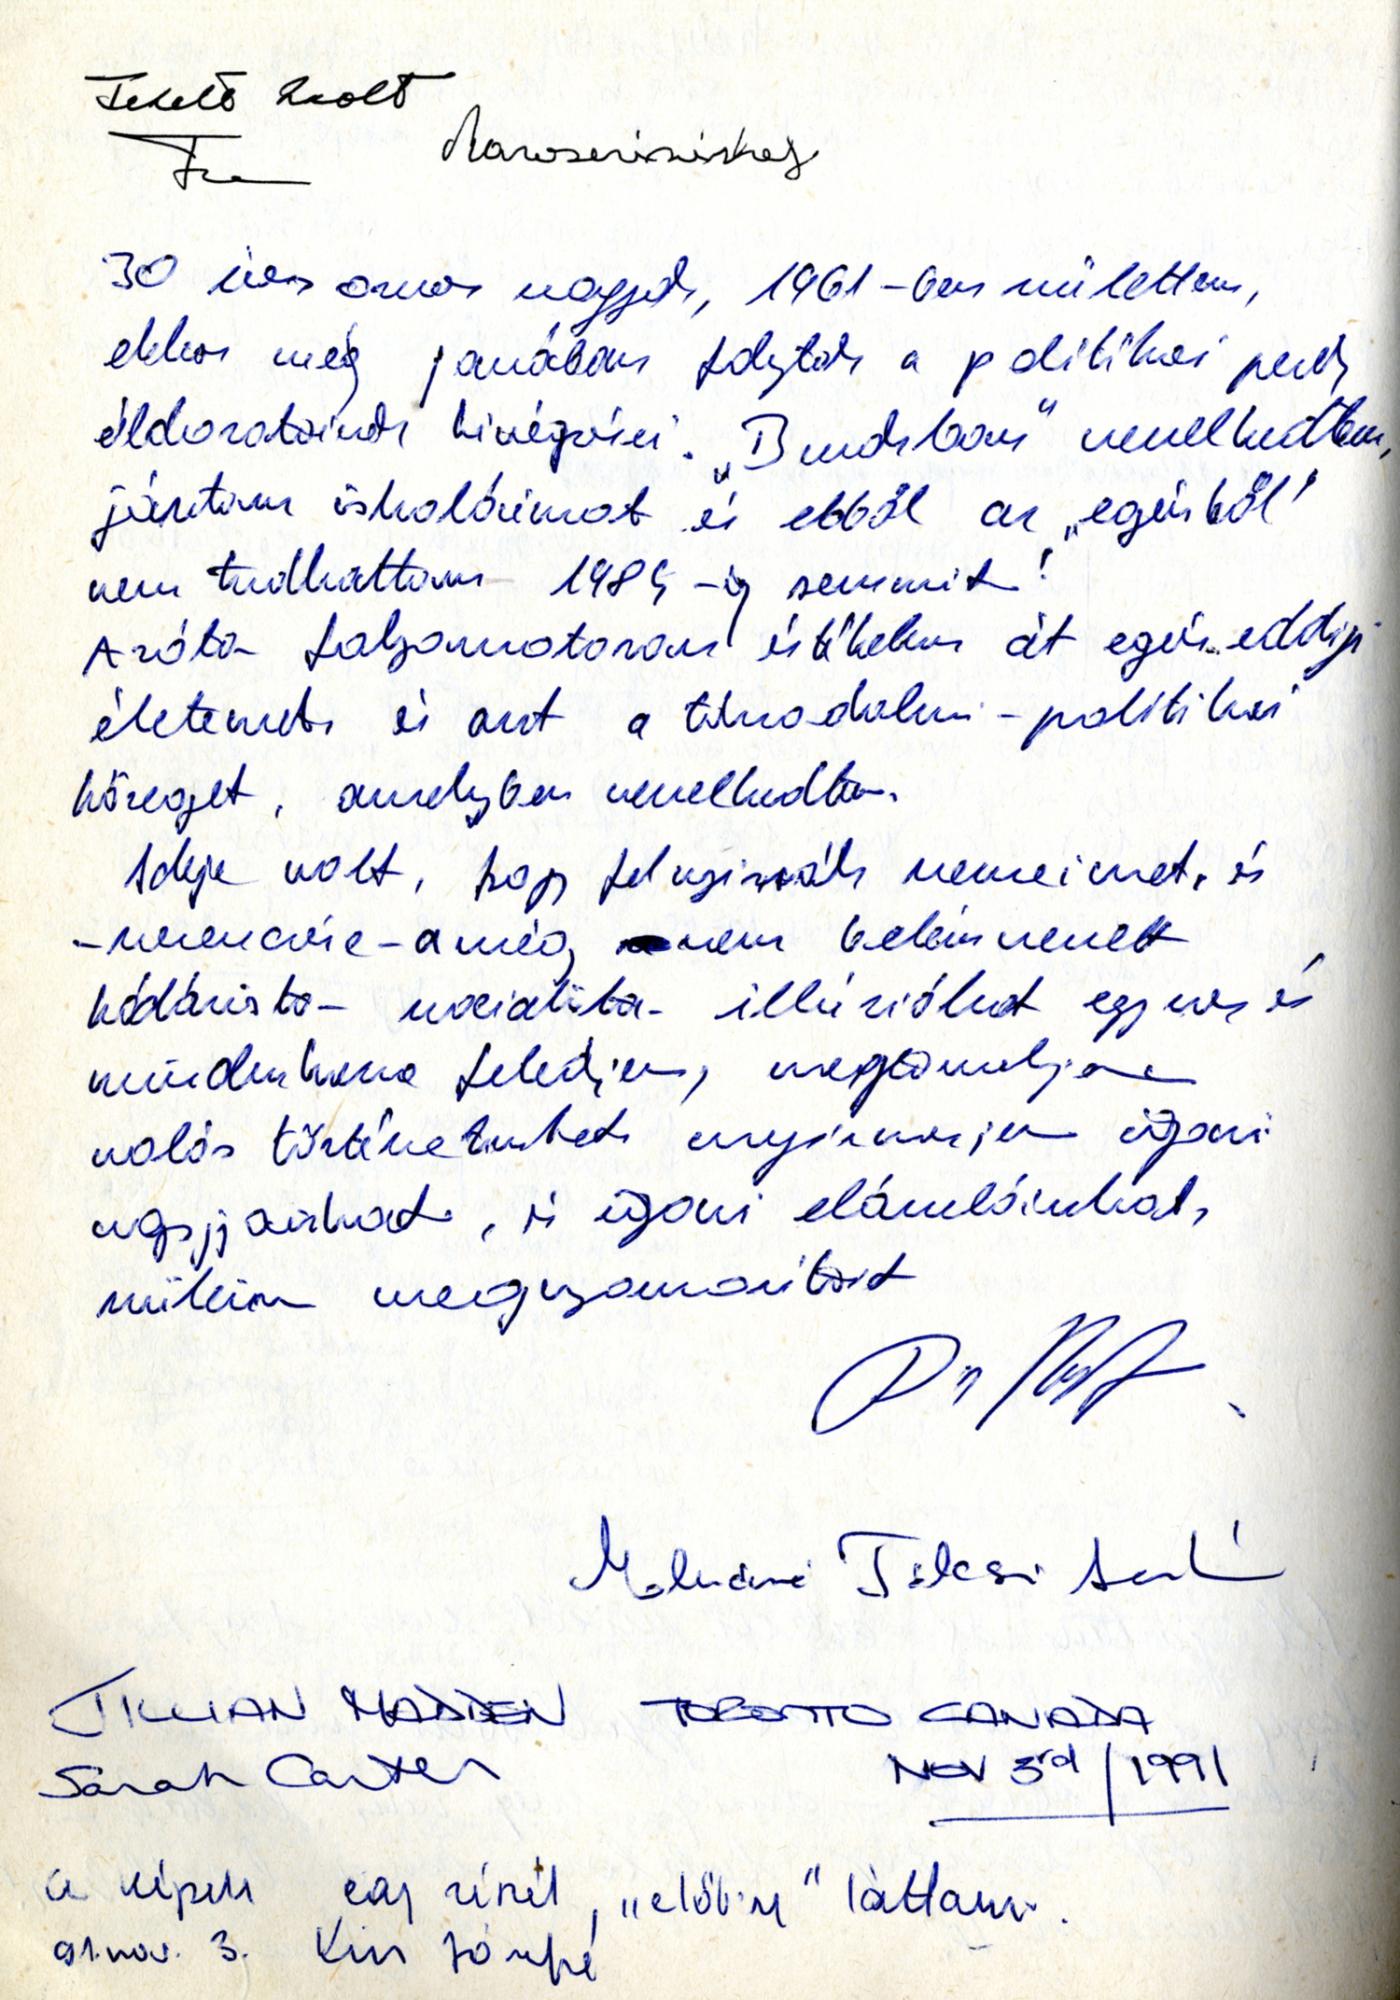 Fekete Zsolt
Marosvásárhely
30 éves orvos vagyok, 1961-ben születtem,
ekkor még javában folytak a politikai perek
áldozatainak kivégzései. „Burokban" nevelkedtem,
jártam iskoláimat és ebből az „egészből"
nem tudhattam 1989-ig semmit!
Azóta folyamatosan értékelem át egész eddigi
életemet és azt a társadalmi-politikai
közeget, amelyben nevelkedtem.
Ideje volt, hogy felnyissák szemeimet, és
-szerencsére- amég nem belém nevelt
kádárista- szocialista- illúziókat egyszer és
mindenkorra feledjem, megismerjem
valós történetünket, igazi
nagyjainkat, és igazi elárulóinkat,
megnyomorítóit
Molnárné Tolcsi
JILLIAN MADDEN TORONTO CANADA
Sarah Carter NOV 3rd/1991
A képek egy részét, „élőben" láttam.
91. nov. 3. Kiss Józsefné